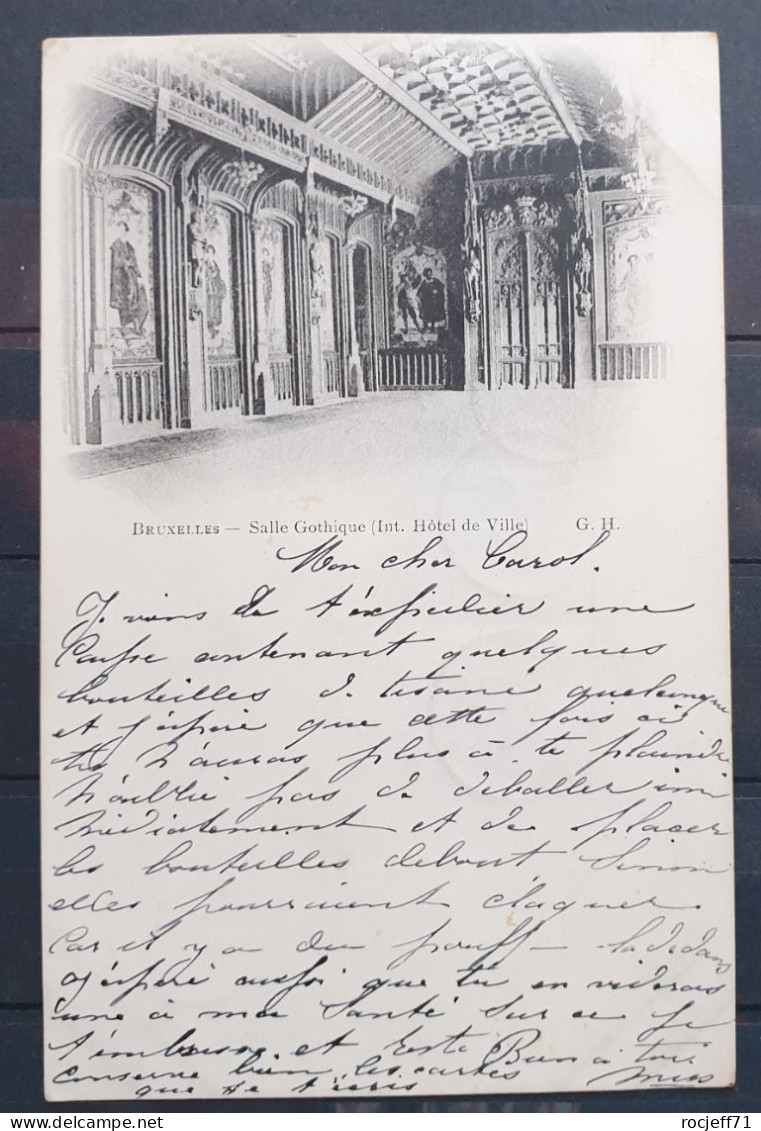 BRUXELLES — Salle Gothique (Int. Hôtel de Ville) G. H.
Mon cher Carol.
Je viens de t'expédier une
Caisse contenant quelques
bouteilles de tisane quelconque
et j'espère que cette fois ci
tu n'auras plus à te plaindre
N'oublie pas de déballer im
médiatement et de placer
les bouteilles debout sinon
elles pourraient claquer.
Car il y a du pouff la dedans
J'espère aussi que tu en videras
une à ma Santé Sur ce je
t'embrasse et reste Bien à toi
conserve bien les cartes
que je t'écris
rocjeff71